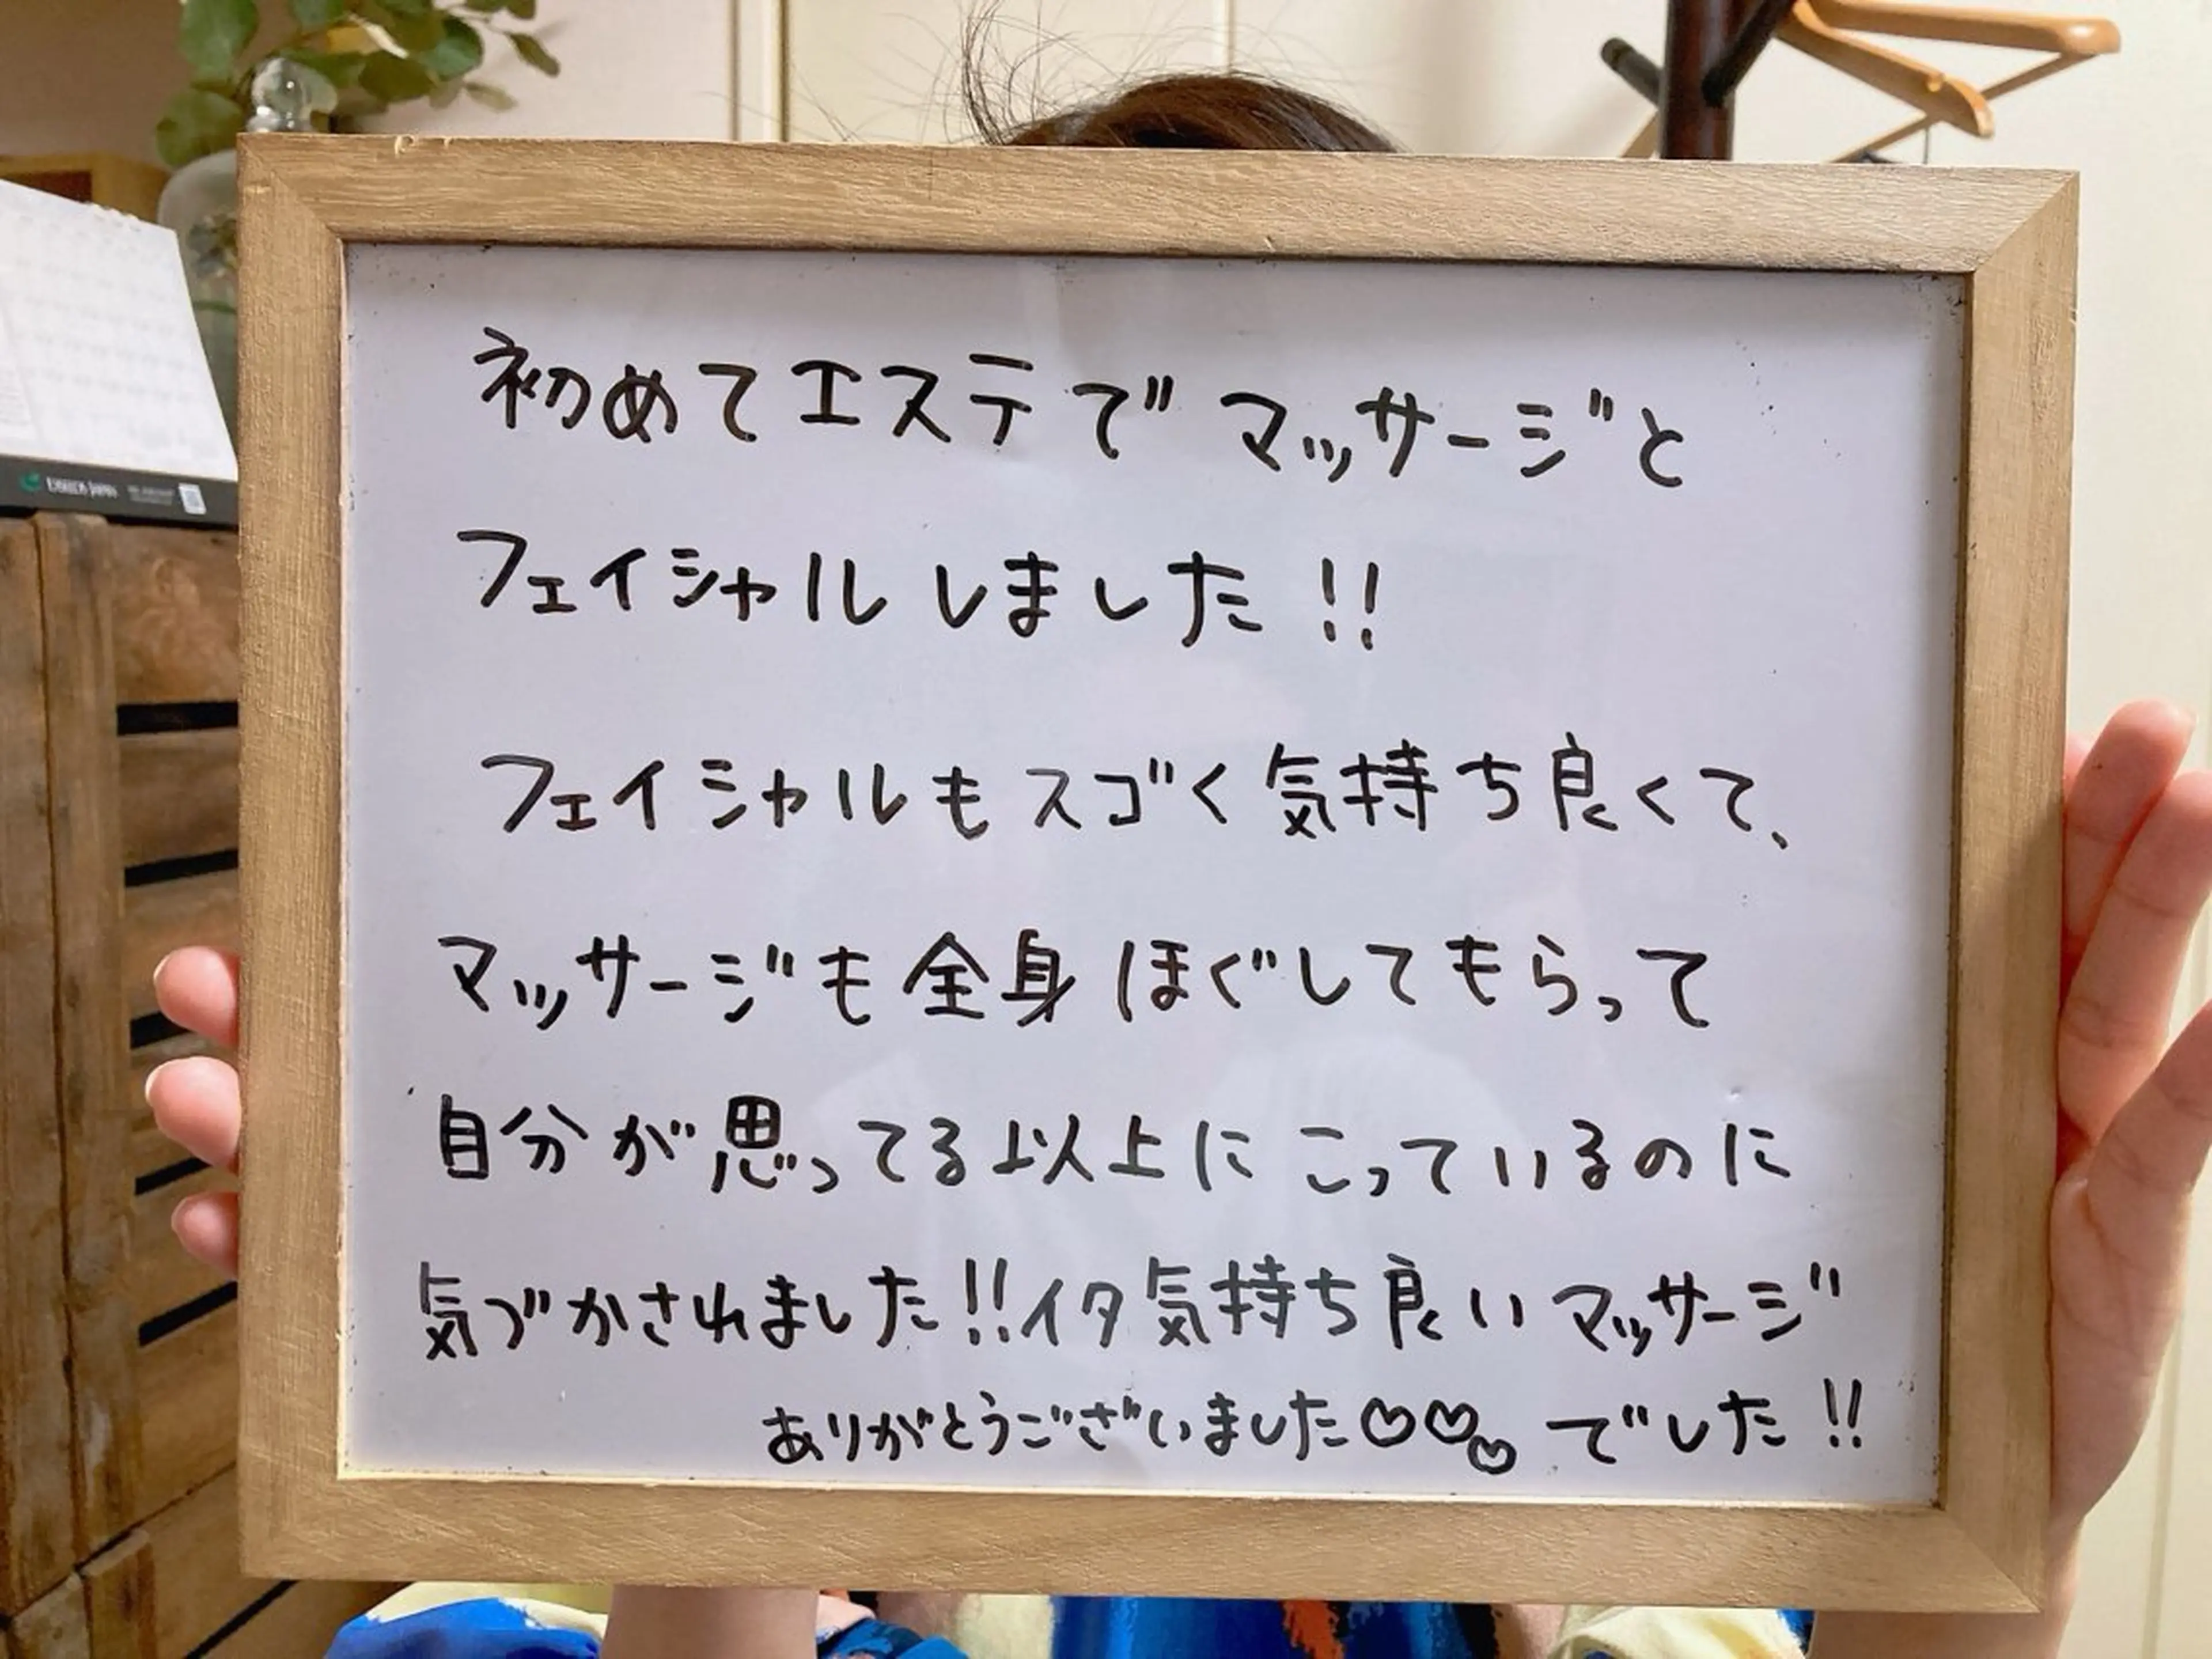 初めてエステでマッサージと
フェイシャルしました!!
フェイシャルもスゴく気持ち良くて、
マッサージも全身ほぐしてもらって
自分が思ってる以上にこっているのに
気づかされました!!イタ気持ち良いマッサージ
でした!!
ありがとうございました♡♡♡